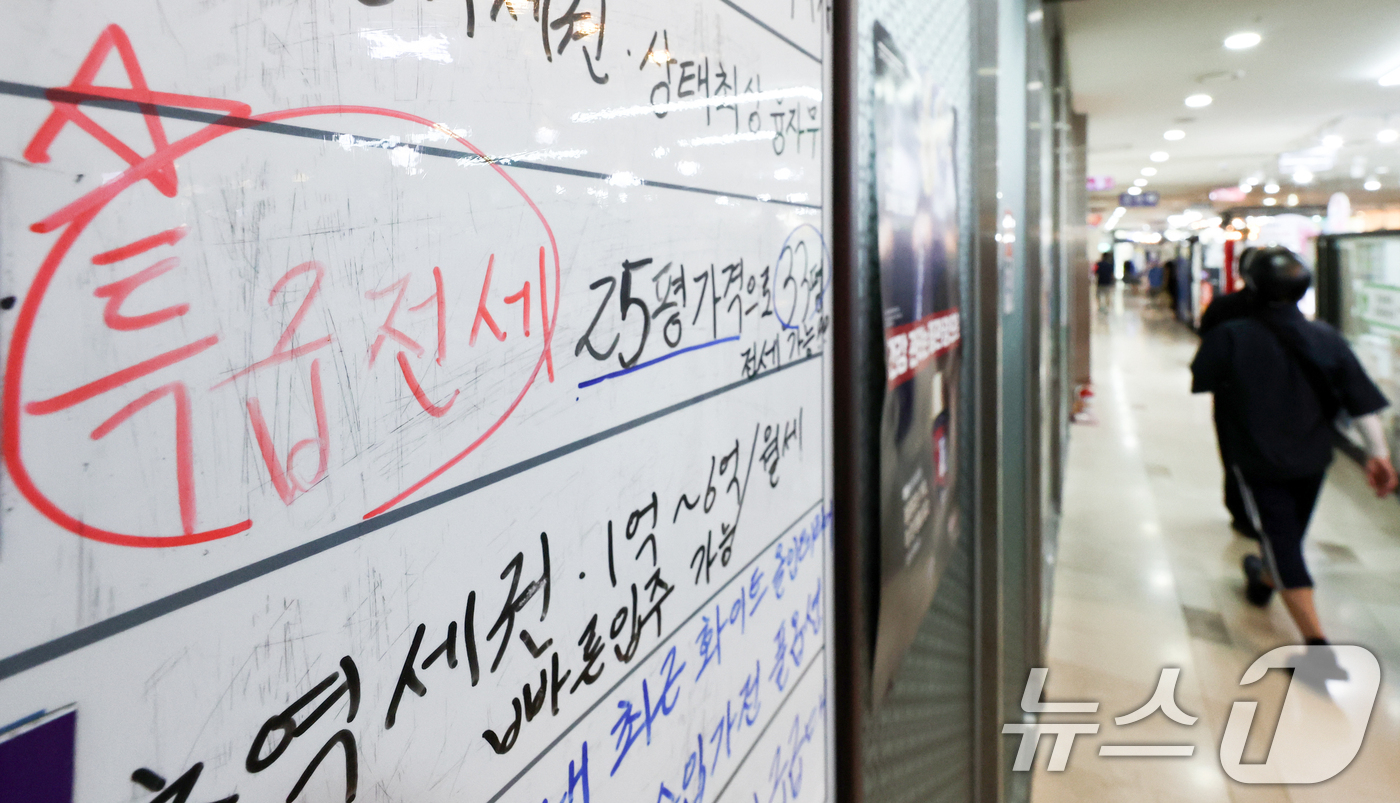 상태최상
융자무
특급전세
25평가격으로 33평
전세 가능
역세권·1억~6억/월세
빠른입주 가능
최근 화이트 올인테리어
가전 풀옵션
뉴스1